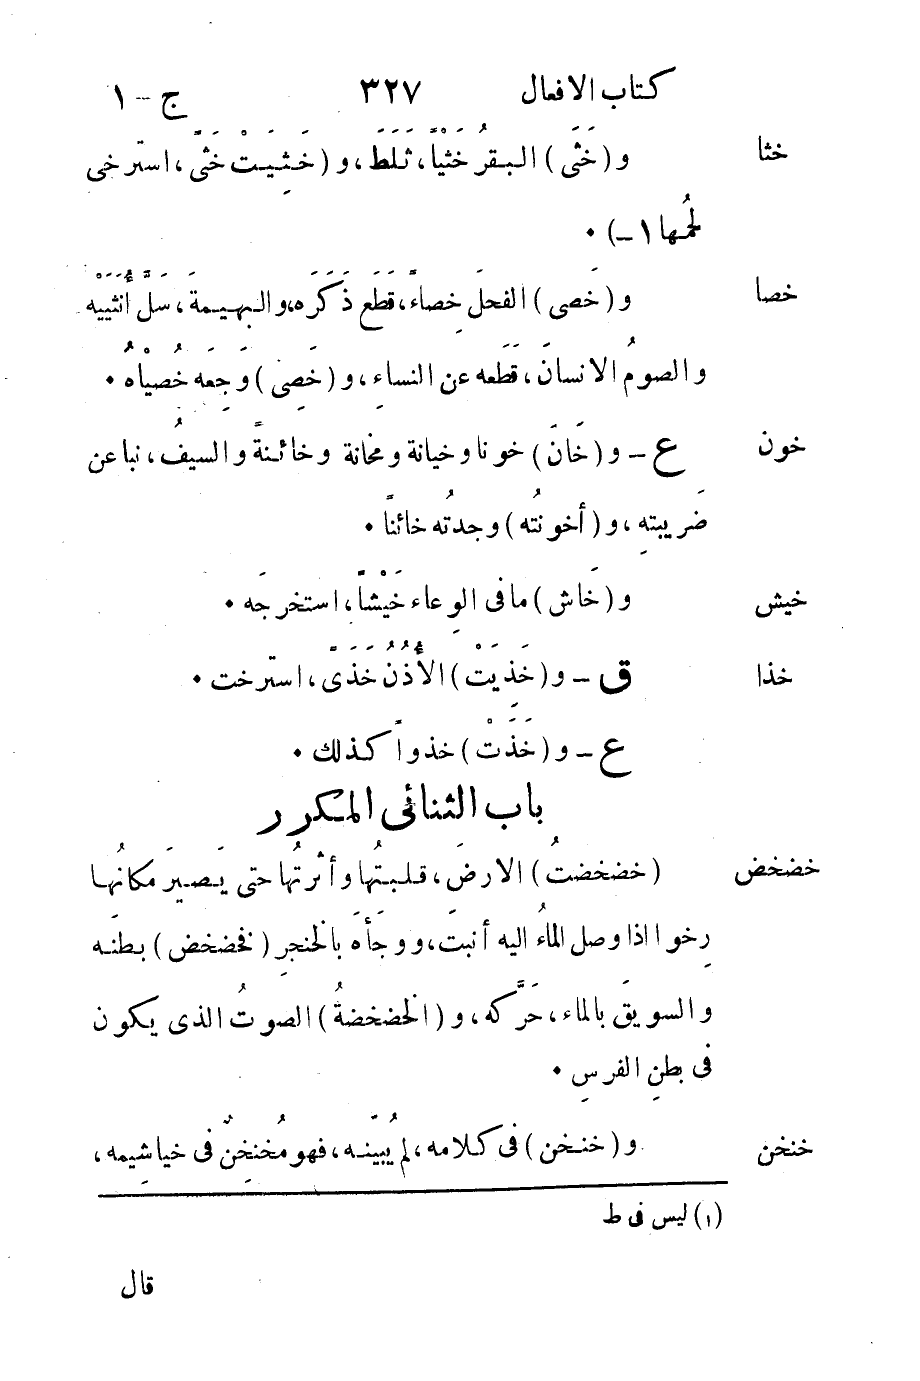 كتاب الافعال ٣٢٧ ج - ١
خثا و (خَثَى) البقرُ خَثْياً، ثَلَطَ، و (خَثِيَتْ خَثًى، استرخى
لحُمها ١ـ) •
خصا و (خَصى) الفحلَ خِصاءً، قَطَع ذَكَرَه، والبهيمةَ، سَلَّ أُنثَيَيْه
والصومُ الانسانَ، قَطَعه عن النساءِ، و (خَصِىَ) وَجِعَه خُصْيَاهُ •
خون ع ـ و (خَانَ) خونا وخيانة ومخانة وخائنةً والسيفُ، نبا عن
ضَريبتهِ، و (أخونتُه) وجدتُه خائناً •
خيش و (خَاش) ما فى الوِعاء خَيْشاً، استخرجَه •
خذا ق ـ و (خَذِيَتْ) الأُذُنُ خَذًى، استرخت •
ع ـ و (خَذَتْ) خذواً كذلك •
باب الثنائى المكرر
خضخض (خضخضتُ) الارضَ، قلبتُها وأثرتُها حتى يَصيرَ مكانُها
رِخوا اذا وصل الماءُ اليه أنبتَ، ووَجَأَه بالخنجرِ (فخضخض) بطنَه
والسويقَ بالماء، حَرَّكه، و (الخضخضةُ) الصوتُ الذى يكون
فى بطنِ الفرسِ •
خنخن و (خنخن) فى كلامه، لم يُبيّنه، فهو مُخنخِنٌ فى خياشيمه،
(١) ليس فى ط
قال